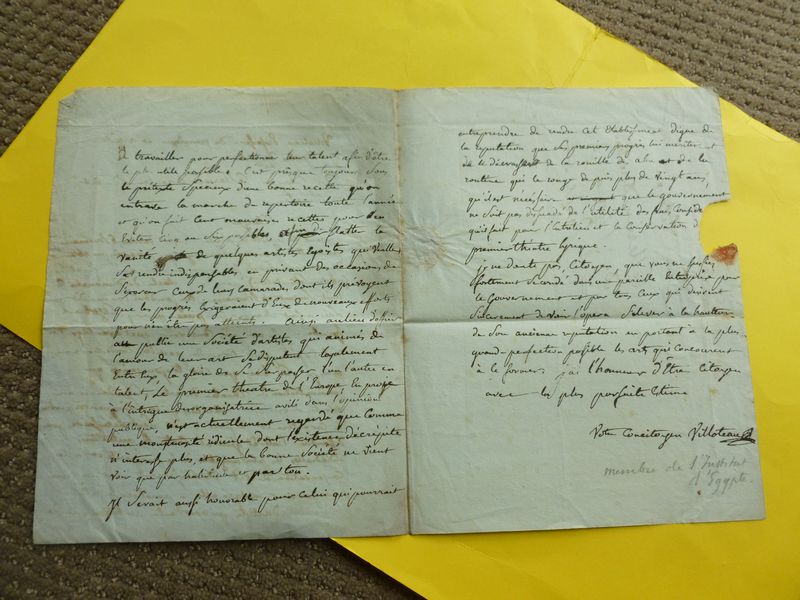 de travailler pour perfectionner leur talent afin d'être
le plus utile possible. C'est presque toujours sous
le prétexte spécieux d'une bonne recette qu'on
entrave la marche du repertoire toute l'année
et qu'on fait cent mauvaises recettes pour en
Eviter cinq ou six passables flatte la
vanité de quelques artistes Egoistes qui veulent
se rendre indispensables, en privant des occasions de
s'exercer ceux de leurs camarades dont ils prévoyent
que les progrès Exigeraient d'Eux de nouveaux efforts
pour n'en être pas atteints. Ainsi au lieu d'offrir
au public une Société d'artistes, qui animés de
l'amour de leur art se disputent loyalement
Entre Eux la gloire de se surpasser l'un l'autre en
talent, Le premier theatre de l'Europe, En proye
à l'intrigue désorganisatrice avili dans l'opinion
publique, n'est actuellement regardé que comme
une monstruosité ridicule dont l'existence décrépite
n'interesse plus, et que la bonne Société ne vient
voir que par habitude et par ton.
Il serait aussi honorable pour celui qui pourrait
entreprendre de rendre cet Etablissement digne de
la réputation que ses premiers progrès lui méritèrent et
de le de la rouille des abus et de la
routine qui le ronge depuis plus de vingt ans,
qu'il est nécessaire que le gouvernement
ne soit pas de l'utilité des
qu'il fait pour l'entretien et la conservation du
premier theatre lyrique.
Je ne doute pas, Citoyen, que vous ne fussiez
fortement secondé dans une pareille Entreprise par
le Gouvernement et par tous ceux qui désirent
sincèrement de voir l'opera s'élever à la hauteur
de son ancienne reputation en portant à la plus
grande perfection possible les arts qui concourent
à le former. j'ai l'honneur d'Etre Citoyen
avec la plus parfaite Estime
Votre Concitoyen Villoteau
membre de l'Institut
d'Egypte.